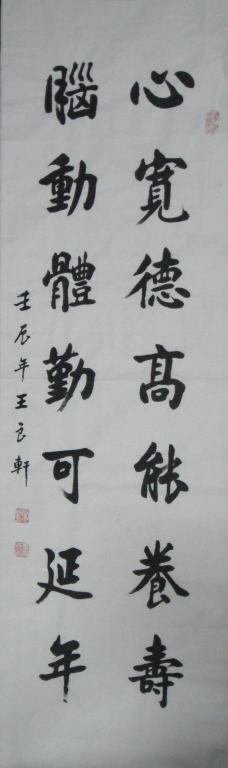 心寬德高能養壽
腦動體勤可延年
壬辰年王良軒